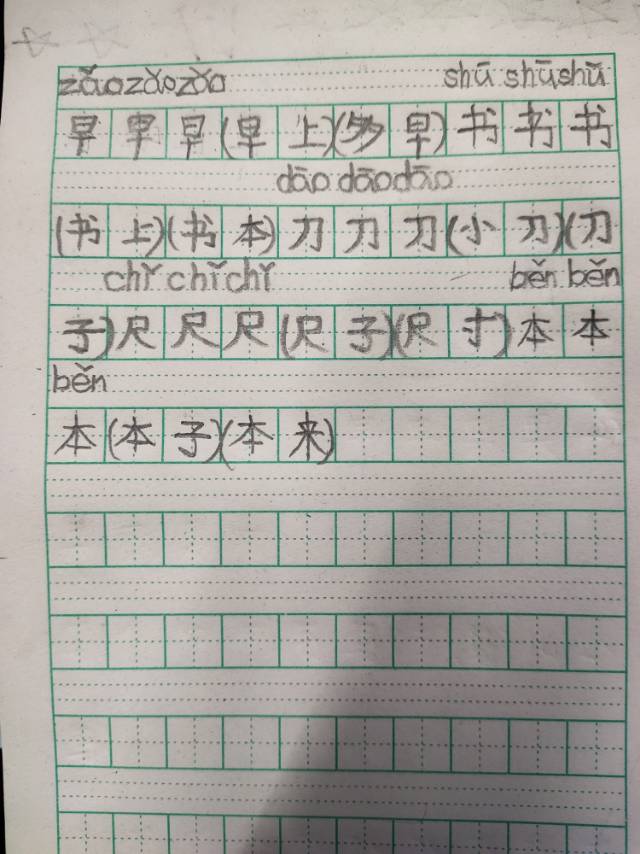 zǎo zǎo zǎo shū shū shū
早早早(早上)(多早)书书书
dāo dāo dāo
(书上)(书本)刀刀刀(小刀)(刀
chǐ chǐ chǐ běn běn
子)尺尺尺(尺子)(尺寸)本本
běn
本(本子)(本来)